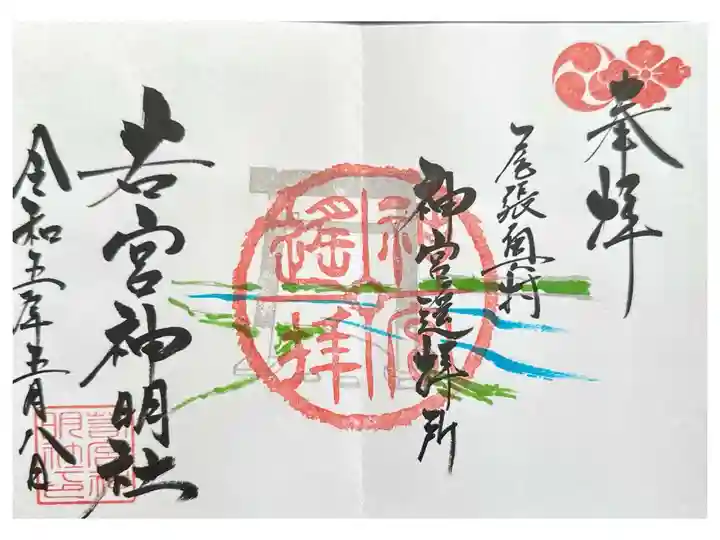 奉拝
尾張奥村
神宮遥拝所
神宮
遙拝
若宮神明社
令和五年五月八日
若宮神
明社印